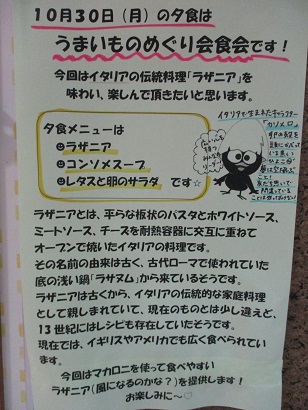 10月30日(月)の夕食は
うまいものめぐり会食会です!
今回はイタリアの伝統料理「ラザニア」を
味わい、楽しんで頂きたいと思います。
夕食メニューは
☺ラザニア
☺コンソメスープ
☺レタスと卵のサラダ です☆
イタリアで生まれたキャラクター
「カリメロ」
卵の殻を
ラザニアとは、平らな板状のパスタとホワイトソース、
ミートソース、チーズを耐熱容器に交互に重ねて
オーブンで焼いたイタリアの料理です。
その名前の由来は古く、古代ローマで使われていた
底の浅い鍋「ラサヌム」から来ているそうです。
ラザニアは古くから、イタリアの伝統的な家庭料理
として親しまれていて、現在のものとは少し違えど、
13世紀にはレシピも存在していたそうです。
現在では、イギリスやアメリカでも広く食べられてい
ます。
今回はマカロニを使って食べやすい
ラザニア(風になるのかな?)を提供します!
お楽しみに~♡